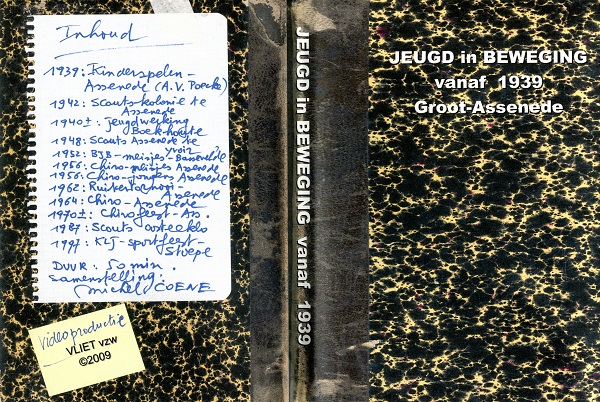 Inhoud
1939: Kinderspelen-
Assenede (A.V. Poecke)
1942: Scoutskolonie te
Assenede
1940±: Jeugdwerking
Boekhoute
1948: Scouts Assenede te
Yvoir
1952: BJB-meisjes-Bassevelde
1956: Chiro-meisjes Assenede
1956: Chiro-jongens Assenede
1962: Ruitertornooi-
Assenede
1964: Chiro-Assenede
1970±: Chirofeest-Ass.
1987: Scouts
1997: KLJ-sportfeest-
Stoepe
DUUR: 50 min.
samenstelling:
michel COENE
videoproductie
VLIET vzw
©2009
JEUGD in BEWEGING vanaf 1939
JEUGD in BEWEGING
vanaf 1939
Groot-Assenede